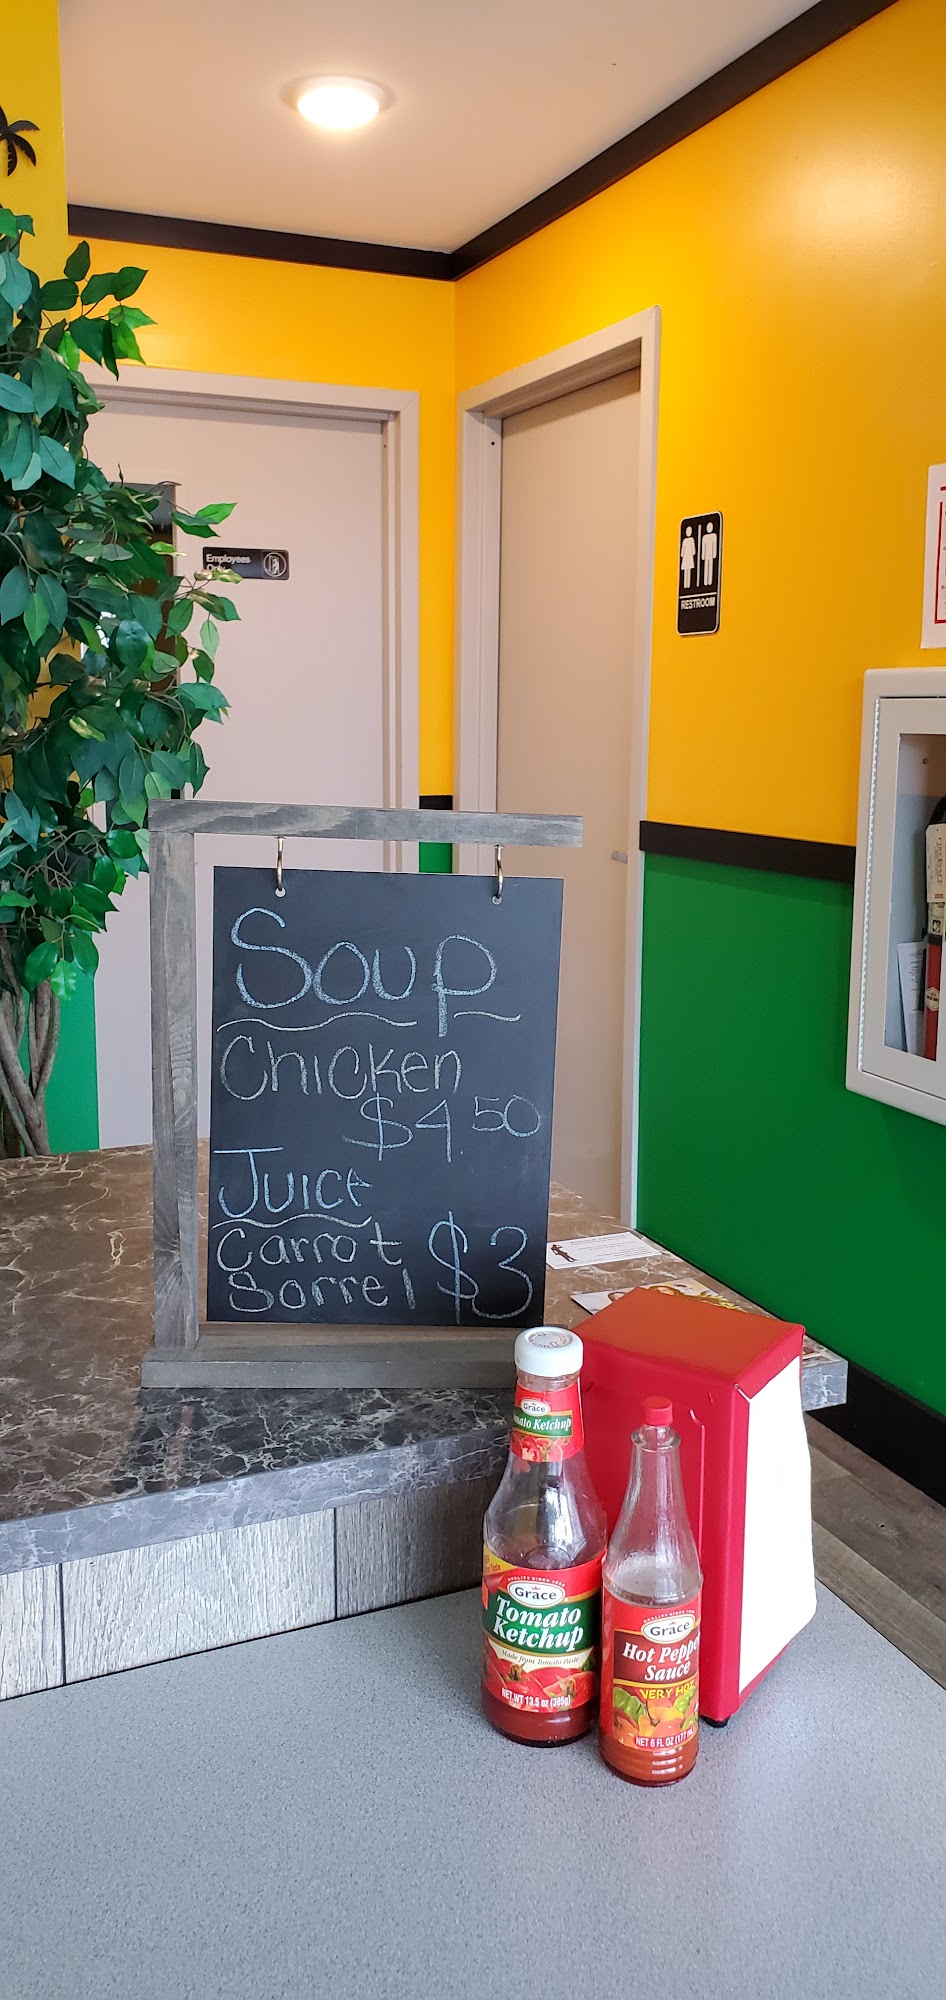 Employees
Only
RESTROOM
Soup
Chicken
$4.50
Juice
Carrot
Sorrel $3
Grace
Tomato Ketchup
QUALITY SINCE 1922
Grace
Tomato
Ketchup
Made from Tomato Paste
NET WT 13.5 oz (385g)
Grace
Hot Pepper
Sauce
VERY HOT
NET 6 FL OZ (177 mL)